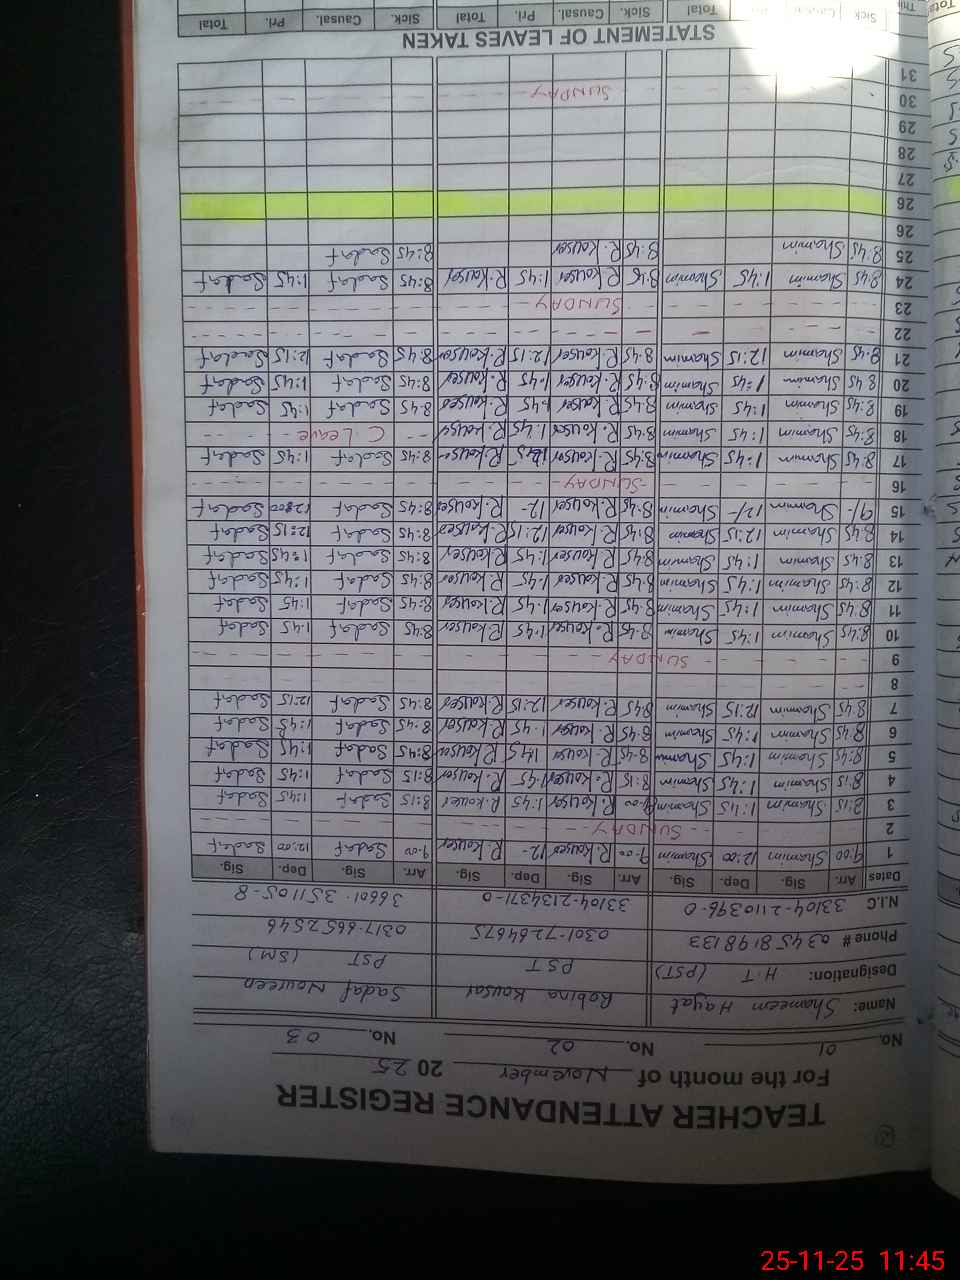 TEACHER ATTENDANCE REGISTER
For the month of November 2025
No. 01 No. 02 No. 03
Name: Shameem Hayat Robina Kousar Sadaf Noureen
Designation: H.T (PST) PST PST (SM)
Phone # 0345 8198133 0301-7264675 0317-6652546
N.I.C 33104-2110396-0 33104-2134371-0 36601-3511105-8
Dates Arr. Sig. Dep. Sig. Arr. Sig. Dep. Sig. Arr. Sig. Dep. Sig.
1 9:00 Shamim 12:00 Shamim 9:00 R.kouser 12- R.kouser 9:00 Sadaf 12:00 Sadaf
2 SUNDAY
3 8:15 Shamim 1:45 Shamim 9:00 R.kouser 1:45 R.kouser 8:15 Sadaf 1:45 Sadaf
4 8:15 Shamim 1:45 Shamim 8:15 R.kouser 1:45 R.kouser 8:15 Sadaf 1:45 Sadaf
5 8:45 Shamim 1:45 Shamim 8:45 R.kouser 1:45 R.kouser 8:45 Sadaf 1:45 Sadaf
6 8:45 Shamim 1:45 Shamim 8:45 R.kouser 1:45 R.kouser 8:45 Sadaf 1:45 Sadaf
7 8:45 Shamim 12:15 Shamim 8:45 R.kouser 12:15 R.kouser 8:45 Sadaf 12:15 Sadaf
8
9 SUNDAY
10 8:45 Shamim 1:45 Shamim 8:45 R.kouser 1:45 R.kouser 8:45 Sadaf 1:45 Sadaf
11 8:45 Shamim 1:45 Shamim 8:45 R.kouser 1:45 R.kouser 8:45 Sadaf 1:45 Sadaf
12 8:45 Shamim 1:45 Shamim 8:45 R.kouser 1:45 R.kouser 8:45 Sadaf 1:45 Sadaf
13 8:45 Shamim 1:45 Shamim 8:45 R.kouser 1:45 R.kouser 8:45 Sadaf 1:45 Sadaf
14 8:45 Shamim 12:15 Shamim 8:45 R.kouser 12:15 R.kouser 8:45 Sadaf 12:15 Sadaf
15 9/- Shamim 12/- Shamim 8:45 R.kouser 12- R.kouser 8:45 Sadaf 12:00 Sadaf
16 SUNDAY
17 8:45 Shamim 1:45 Shamim 8:45 R.kouser R.kouser 8:45 Sadaf 1:45 Sadaf
18 8:45 Shamim 1:45 Shamim 8:45 R.kouser 1:45 R.kouser C.Leave
19 8:45 Shamim 1:45 Shamim 8:45 R.kouser 1:45 R.kouser 8:45 Sadaf 1:45 Sadaf
20 8:45 Shamim 1:45 Shamim 8:45 R.kouser 1:45 R.kouser 8:45 Sadaf 1:45 Sadaf
21 8:45 Shamim 12:15 Shamim 8:45 R.kouser 12:15 R.kouser 8:45 Sadaf 12:15 Sadaf
22
23 SUNDAY
24 8:45 Shamim 1:45 Shamim 8:45 R.kouser 1:45 R.kouser 8:45 Sadaf 1:45 Sadaf
25 8:45 Shamim 8:45 R.kouser 8:45 Sadaf
26
26
27
28
29
30 SUNDAY
31
STATEMENT OF LEAVES TAKEN
Sick Pri. Total Sick. Causal. Pri. Total Sick. Causal. Pri. Total
25-11-25 11:45